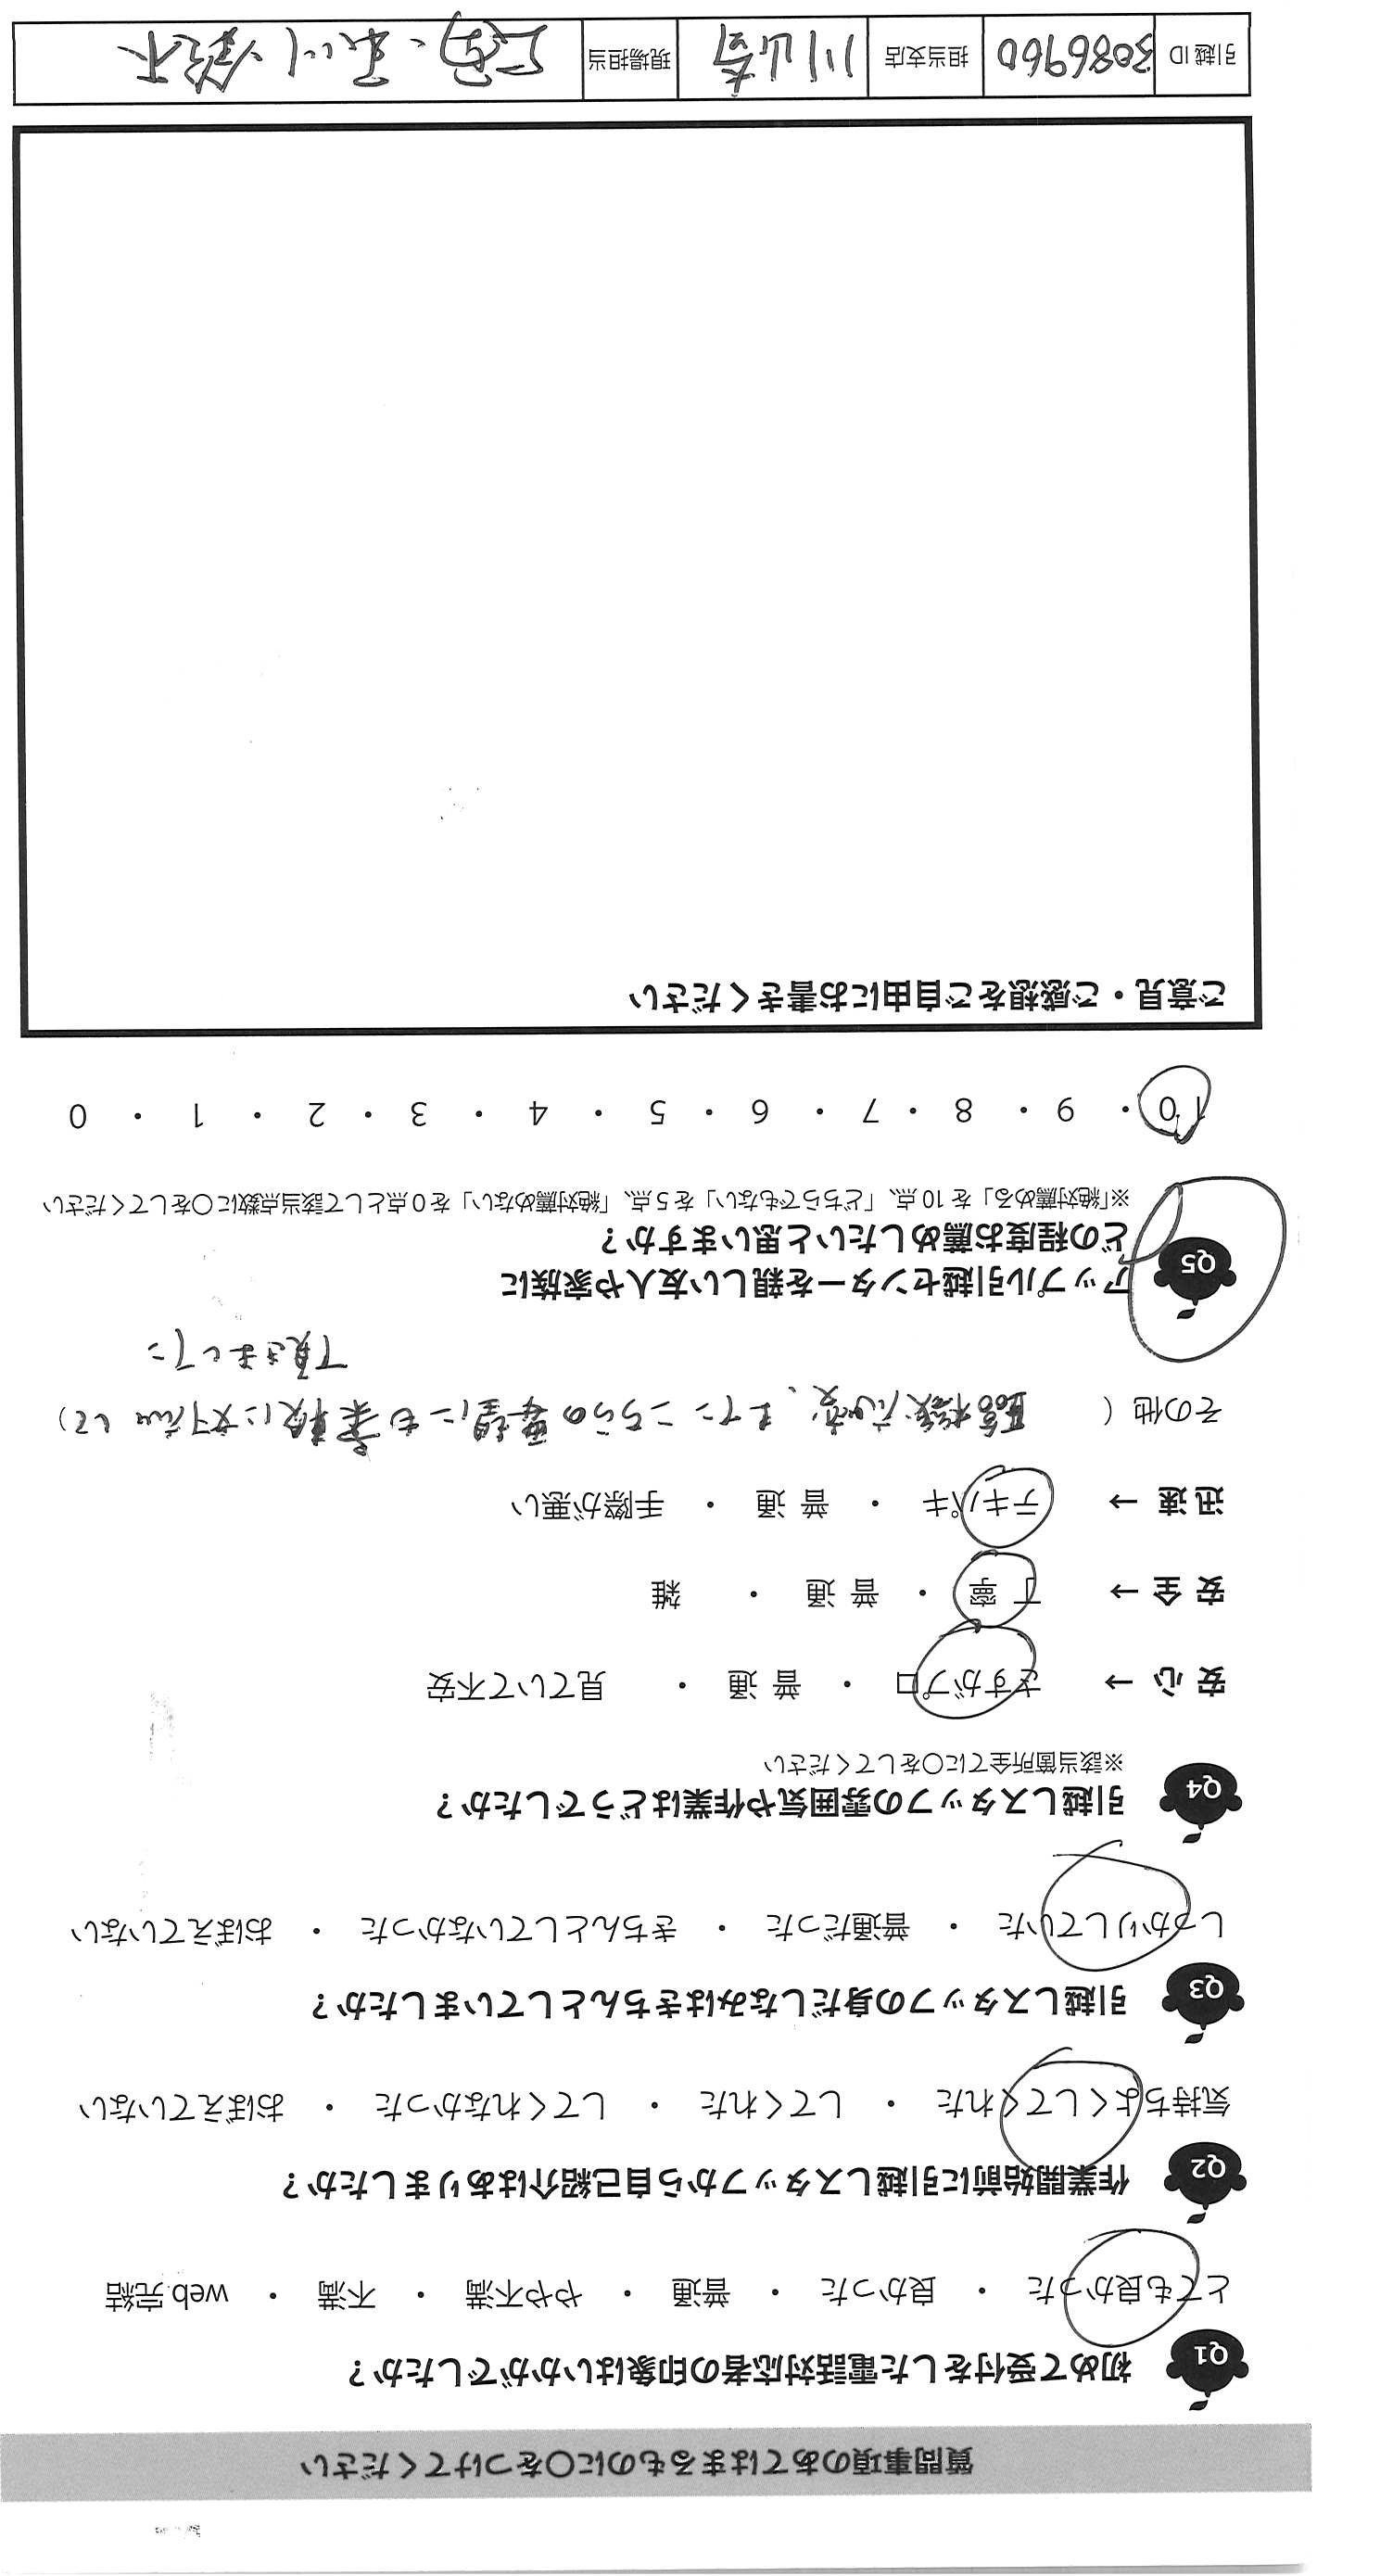 質問事項のあてはまるものに〇をつけてください
Q1 初めて受付をした電話対応者の印象はいかがでしたか？
とても良かった ・ 良かった ・ 普通 ・ やや不満 ・ 不満 ・ web完結
Q2 作業開始前に引越しスタッフから自己紹介はありましたか？
気持ちよくしてくれた ・ してくれた ・ してくれなかった ・ おぼえていない
Q3 引越しスタッフの身だしなみはきちんとしていましたか？
しっかりしていた ・ 普通だった ・ きちんとしていなかった ・ おぼえていない
Q4 引越しスタッフの雰囲気や作業はどうでしたか？
※該当箇所全てに〇をしてください
安心 → さすがプロ ・ 普通 ・ 見ていて不安
安全 → 丁寧 ・ 普通 ・ 雑
迅速 → テキパキ ・ 普通 ・ 手際が悪い
その他 ( 臨機応変、またこちらの要望にも柔軟に対応して )
頂きました
Q5 アップル引越センターを親しい友人や家族に
どの程度お薦めしたいと思いますか？
※「絶対薦める」を10点、「どちらでもない」を5点、「絶対薦めない」を0点として該当点数に〇をしてください
10 ・ 9 ・ 8 ・ 7 ・ 6 ・ 5 ・ 4 ・ 3 ・ 2 ・ 1 ・ 0
ご意見・ご感想をご自由にお書きください
引越ID 3086960 担当支店 川崎 現場担当 鈴木